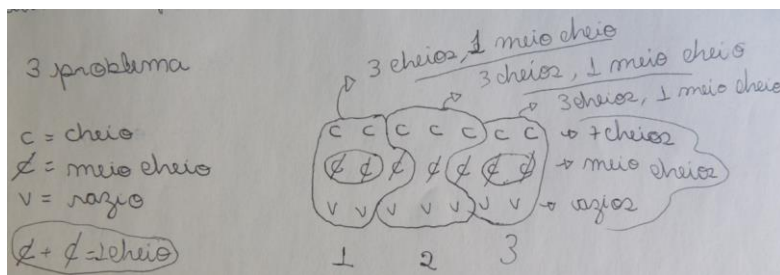 3 problema
3 cheios, 1 meio cheio
3 cheios, 1 meio cheio
3 cheios, 1 meio cheio
c = cheio
¢ = meio cheio
v = vazio
¢ + ¢ = 1 cheio
c c c c c c c → 7 cheios
¢ ¢ ¢ ¢ ¢ ¢ ¢ → meio cheios
v v v v v v v → vazios
1 2 3